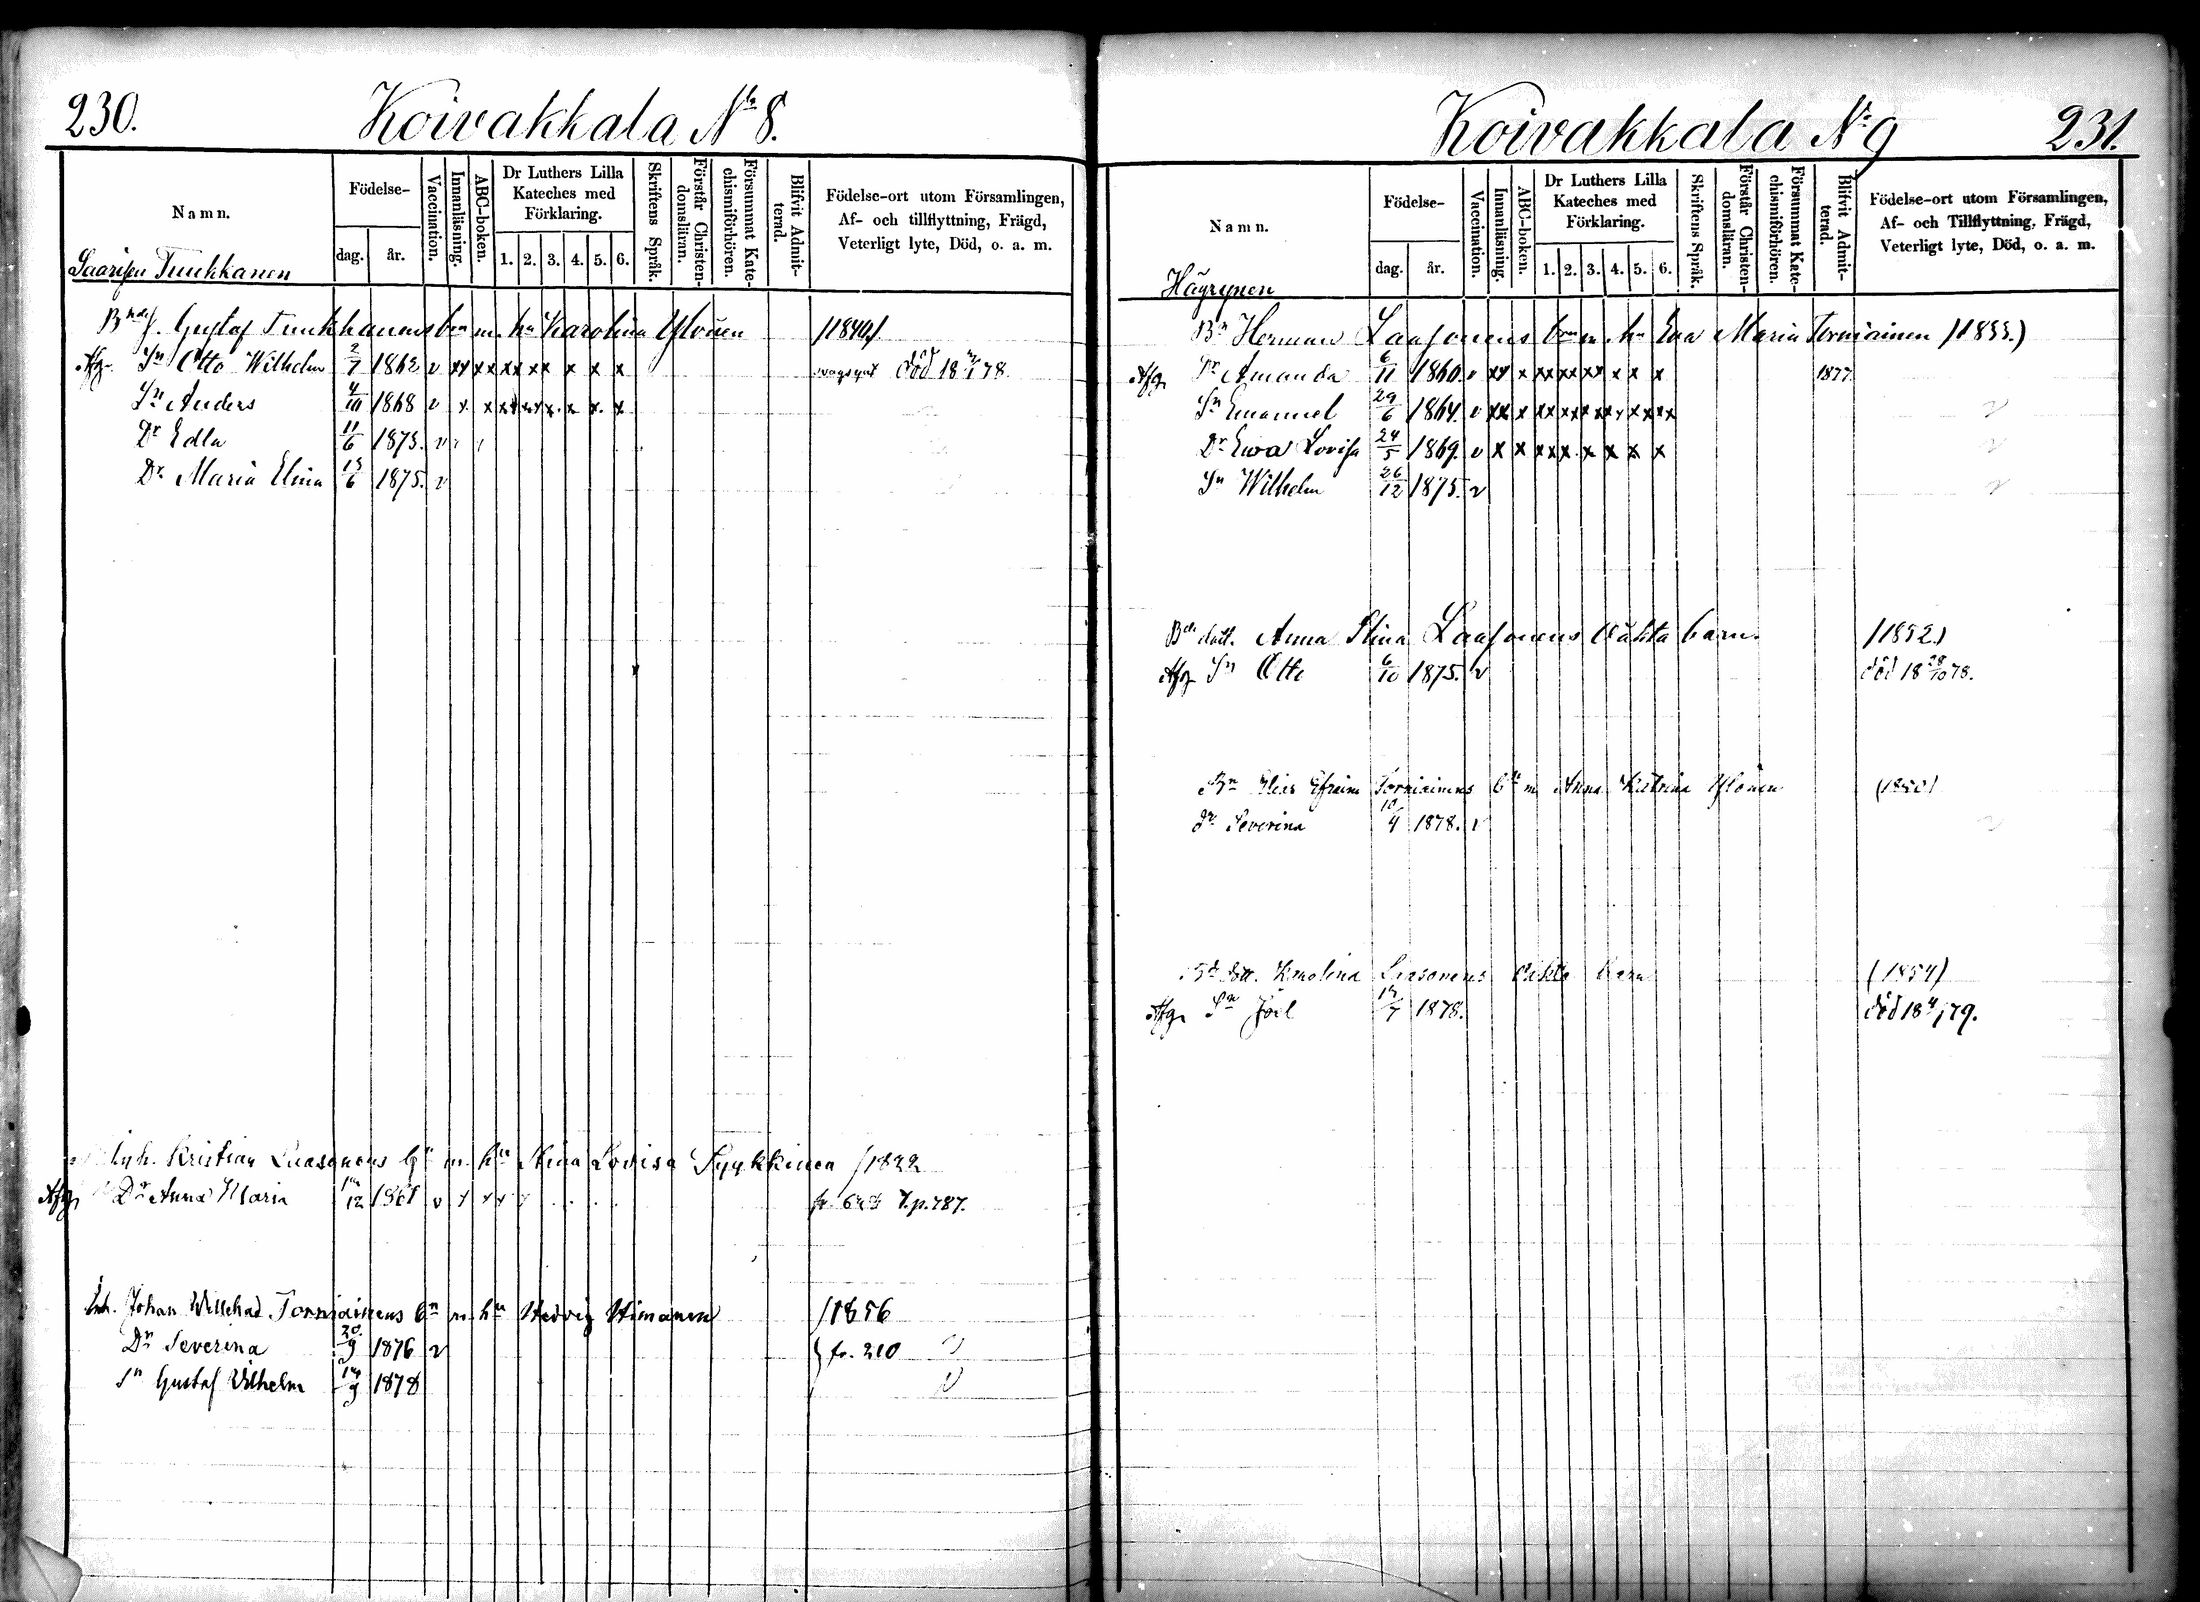 230.
Koivakkala No 8.
Namn.
Födelse-
dag.
år.
Vaccination.
Innanläsning.
ABC-boken.
Dr Luthers Lilla
Kateches med
Förklaring.
1. 2. 3. 4. 5. 6.
Skriftens Språk.
Förstår Christen-
domsläran.
Försummat Kate-
chismiförhören.
Blifvit Admit-
terad.
Födelse-ort utom Församlingen,
Af- och tillflyttning, Frägd,
Veterligt lyte, Död, o. a. m.
Gustaf m. hu Karolina Ylönen /1840/
Afg. Sn Otto Wilhelm 2/7 1862 v xx xx xx xx x x x död 78.
Sn Anders 4/10 1868 v x x
Dr Edla 11/6 1873. v
Dr Maria Elina 1875. v
Inh. Kristian Laasonens m. hu Lovisa /1822
Afg. Dr Anna Maria 12 v T.p. 787.
Inh. Johan Willehad Torniainens bn m. hu Hedvig Himanen /1856
Dr Severina 20/9 1876 v } fr. 210
Sn Gustaf Vilhelm 1878
Koivakkala No 9
231.
Namn.
Födelse-
dag.
år.
Vaccination.
Innanläsning.
ABC-boken.
Dr Luthers Lilla
Kateches med
Förklaring.
1. 2. 3. 4. 5. 6.
Skriftens Språk.
Förstår Christen-
domsläran.
Försummat Kate-
chismiförhören.
Blifvit Admit-
terad.
Födelse-ort utom Församlingen,
Af- och Tillflyttning, Frägd,
Veterligt lyte, Död, o. a. m.
Häyrynen
Bn Herman Laasonens m. hu Eva Maria Torniainen
Afg. Dr Amanda 6/11 1860. v 1877.
Sn Emanuel 29/6 1864. v
Dr Ewa Lovisa 24/5 1869. v
Sn Wilhelm 26/12 1875. v
Anna Stina Laasonens oäkta barn. /1852/
Afg. Sn Otto 6/10 1875. v död 18 28/10 78.
Bn Elias Efraim Torniainens m Anna Katrina Ylönen
Dr Severina 10/4 1878. v
Karolina Laasonens oäkta barn (1854)
Afg. Sn Joel 1878. död 18 79.